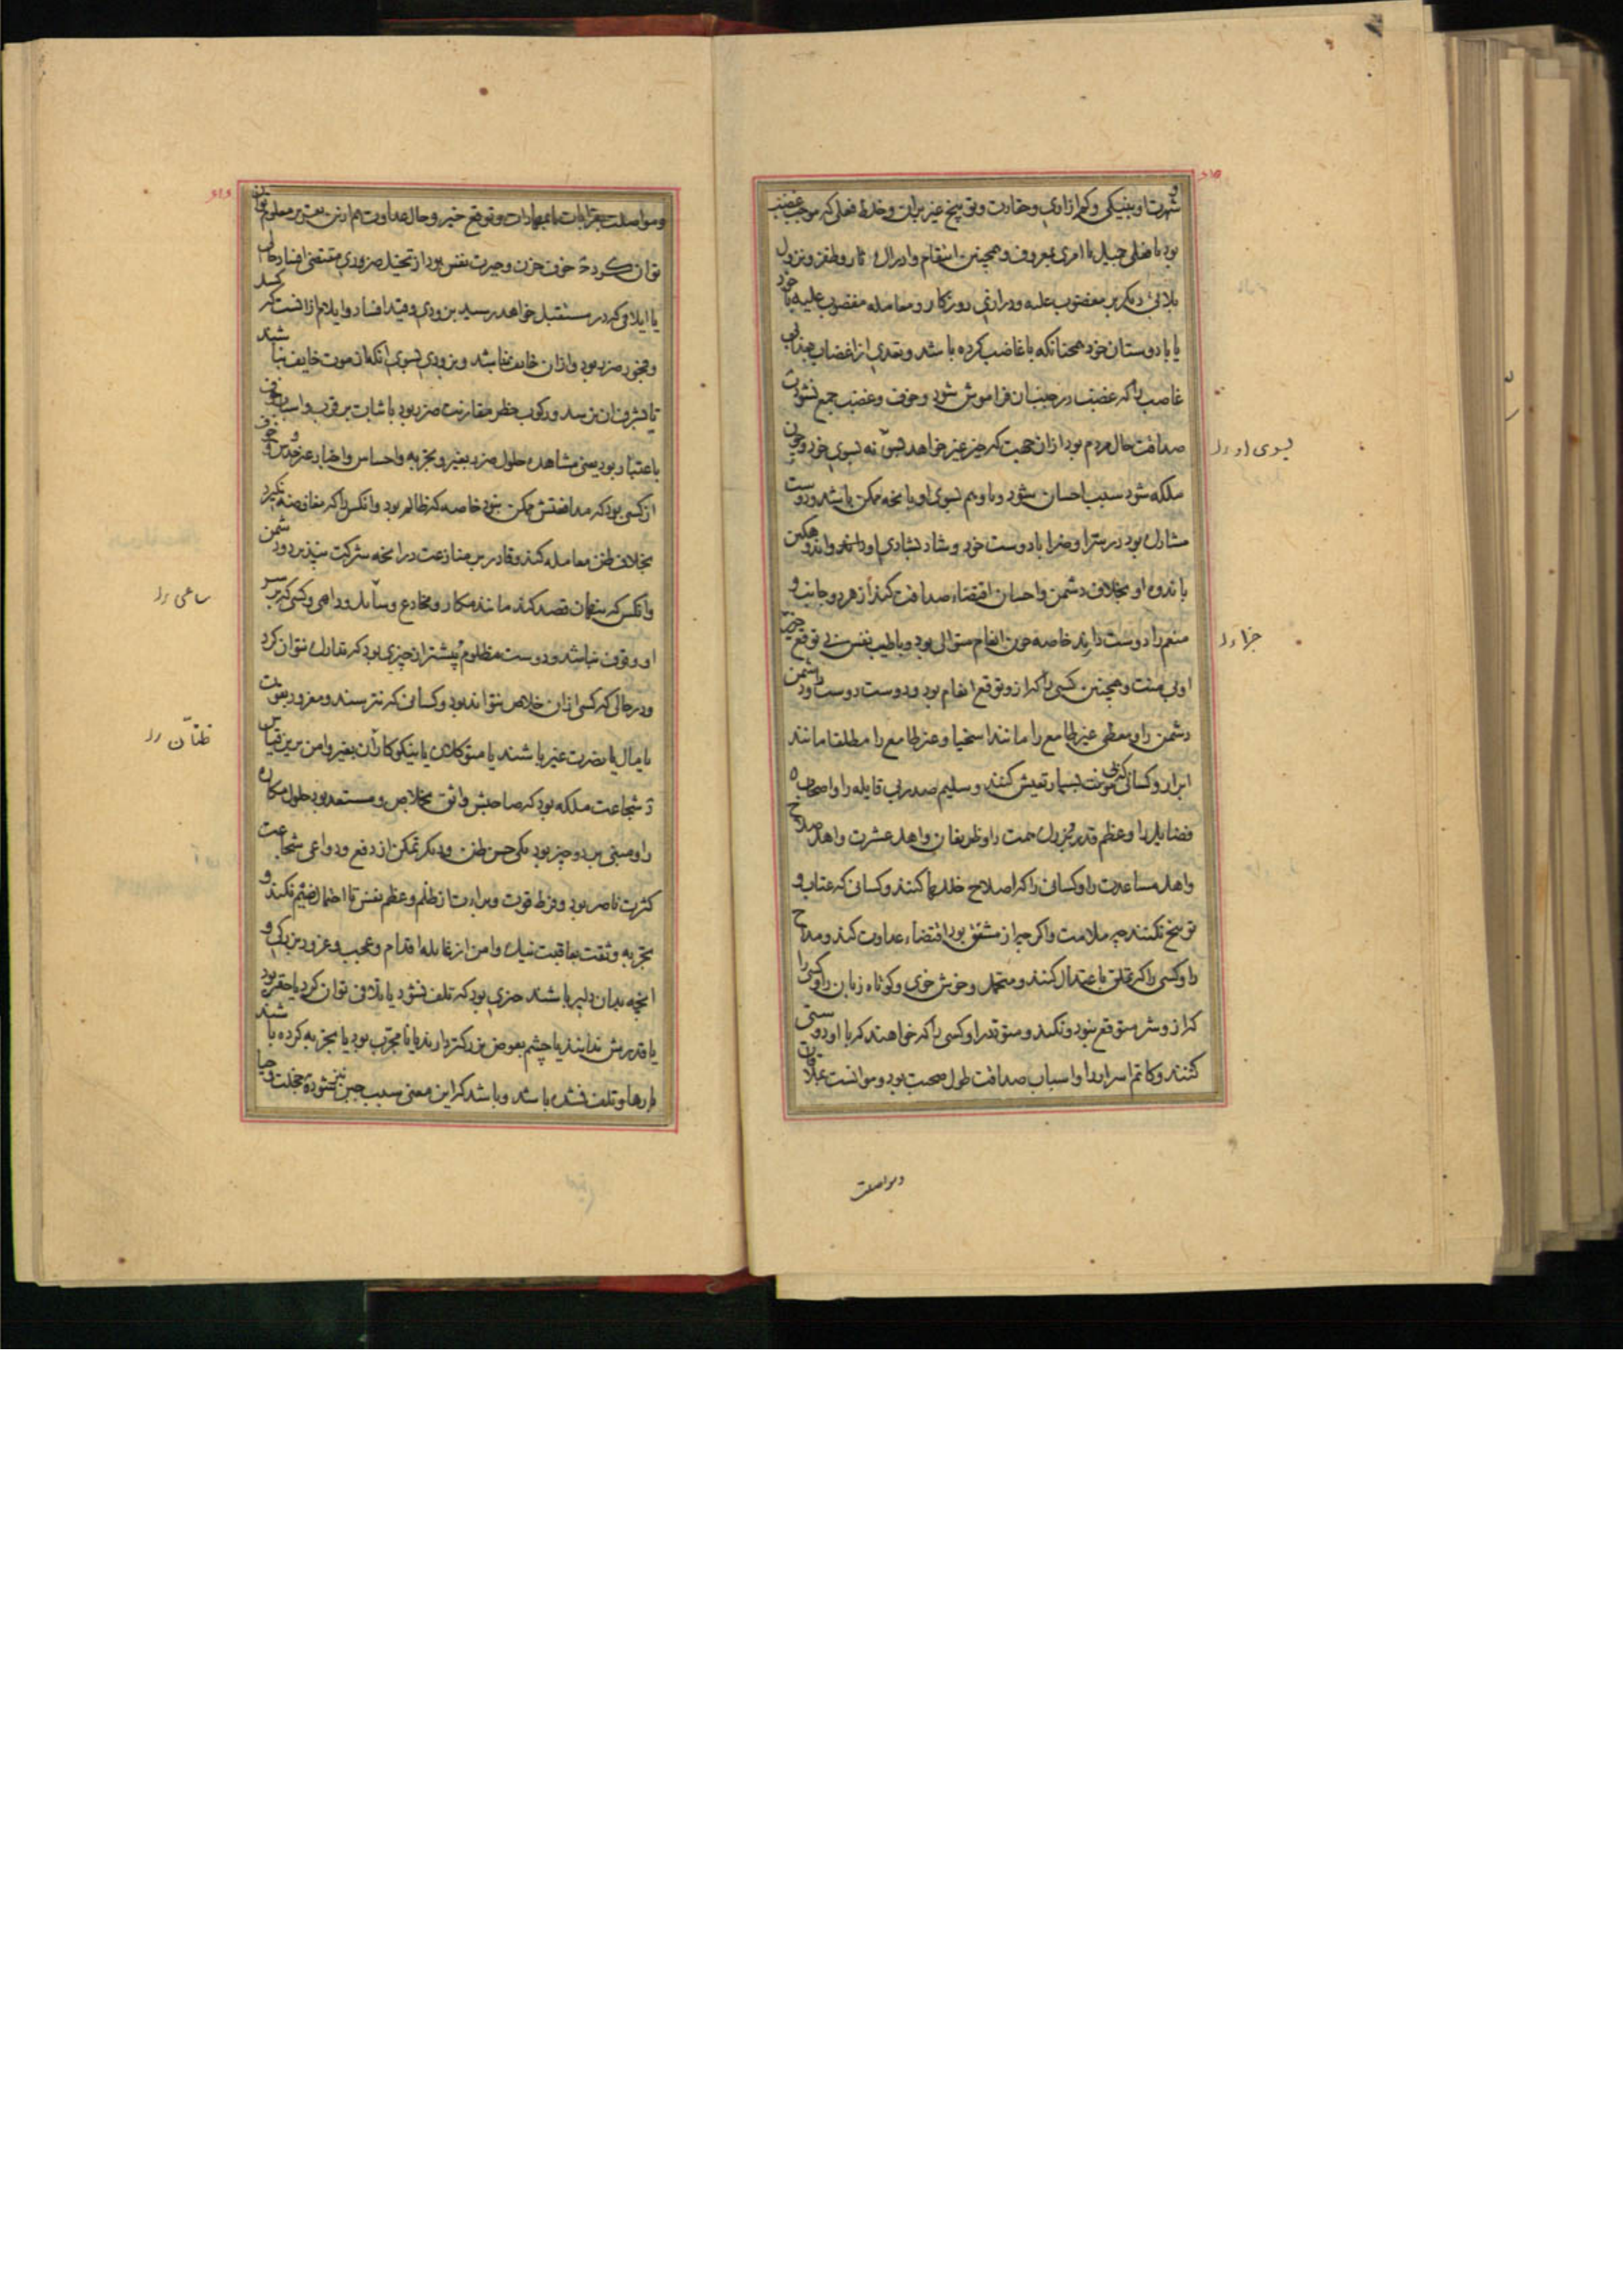 شهرت او بنیکی و کم ازاری و حقارت و توبیخ غیر بران و خلط فعلی که موجب غضب
بود با فعلی جمیل یا امری معروف و همچنین انتقام و ادراک ثار و ظفر و نزول
بلائی دیکر بر مغضوب علیه و درازی روزکار و معامله مغضوب علیه با خود
یا با دوستان خود همچنانکه با غاضب کرده باشد و تعدی از اغضاب
غاضب را که غضب در جنب ان فراموش شود و خوف و غضب جمع نشود
صداقت حال مردم بود ازان جهت که خیر غیر خواهد نه بسوی خود و چون
ملکه شود سبب احسان شود و با وهم بسوی او بانچه ممکن باشد و دوست
مشارک بود در سرا و ضرا با دوست خود و شاد بشادی او و اندوهکین
باندوه او بخلاف دشمن و احسان اقتضاء صداقت کند از هر دو جانب و
منعم را دوست دارند خاصه چون انعام متوالی بود و با طیب نفس و بی توقع
و بی منت و همچنین کسی را که ازو توقع انعام بود و دوست دوست و دشمن
دشمن را و معطی غیر طامع را مانند اسخیا و غیر طامع را مطلقا مانند
ابرار و کسانی که بی مونت بسیار تعیش کنند و سلیم صدر بی غایله را و اصحاب
فضایل را و عظم قدر و بزرک همت را و ظریفان و اهل عشرت و اهل صلاح
و اهل مساعدت را و کسانی را که اصلاح خللها کنند و کسانی که عتاب و
توبیخ نکنند چه ملامت و اکر چه از مشفق بود اقتضاء عداوت کند و مداح
را و کسی را که تملق باعتدال کند و متحمل و خوش خوی و کوتاه زبان را و کسی را
که ازو شر متوقع نبود و نکند و متودد را و کسی را که خواهند که با او دوستی
کنند و کاتم اسرار را و اسباب صداقت طول صحبت بود و موانست
و مواصلت
بسوی او
جزا
و مواصلت بقرابات یا بمهادات و توقع خیر و حال عداوت هم ازین معلوم
توان کرد خوف حزن و حیرت نفس بود از تخیل ضرری مقتضی افساد حالی
یا ایلامی که در مستقبل خواهد رسید بزودی و قید افساد و ایلام ازانست که
و فجور ضرر بود و ازان خایف نباشد و بزودی بسوی انکه از موت خایف نباشند
تا مشرف ان نرسد و رکوب خطر مقارنت ضرر بود با شبات بر قرب و اسباب خوف
باعتبار بود یعنی مشاهده حلول ضرر بغیر و تجربه و احساس و اخبار و خوف
از کسی بود که مدافعتش ممکن نبود خاصه که ظالم بود و انکس را که مفاوضه نکیرد
بخلاف ظن معامله کند و قادر بر منازعت درانچه شرکت نپذیرد و دشمن
و انکس که پنهان قصد کند مانند مکار و مخادع و داهی و کسی که بر سر
او وقوف نباشد و دوست مظلوم و بیشتر ازان چیزی بود که تدارک نتوان کرد
و در حالی که کسی ازان خلاص نتواند بود و کسانی که نترسند و مغرور بقوت
یا بمال یا بنصرت غیر باشند یا متوکلان یا نیکوکاران بغیر و امن برین قیاس
و شجاعت ملکه بود که صاحبش واثق بخلاص و مستعد بود حلول مکاره
را و مبنی بر دو چیز بود یکی حسن ظن و دیکر تمکن از دفع و دواعی شجاعت
کثرت ناصر بود و فرط قوت و براءت از ظلم و عظم نفس تا احتمال ضیم نکند و
تجربه و ثقت بعاقبت نیک و امن از غایله اقدام و عجب و غرور بزرکی و
انچه بدان دلیر باشند چیزی بود که تلف نشود یا تلافی توان کرد یا حقیر بود
یا قدرش ندانند یا چشم بعوض بزرکتر دارند یا نامجرب بود یا تجربه کرده باشند
بارها و تلف نشده باشد و باشد که این معنی سبب جبن نیز شود خجلت و حیا
ساعی
ظنان